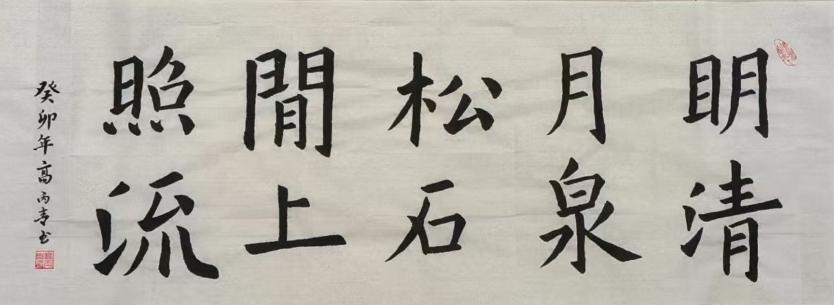 明月松閒照
清泉石上流
癸卯年高丙青书